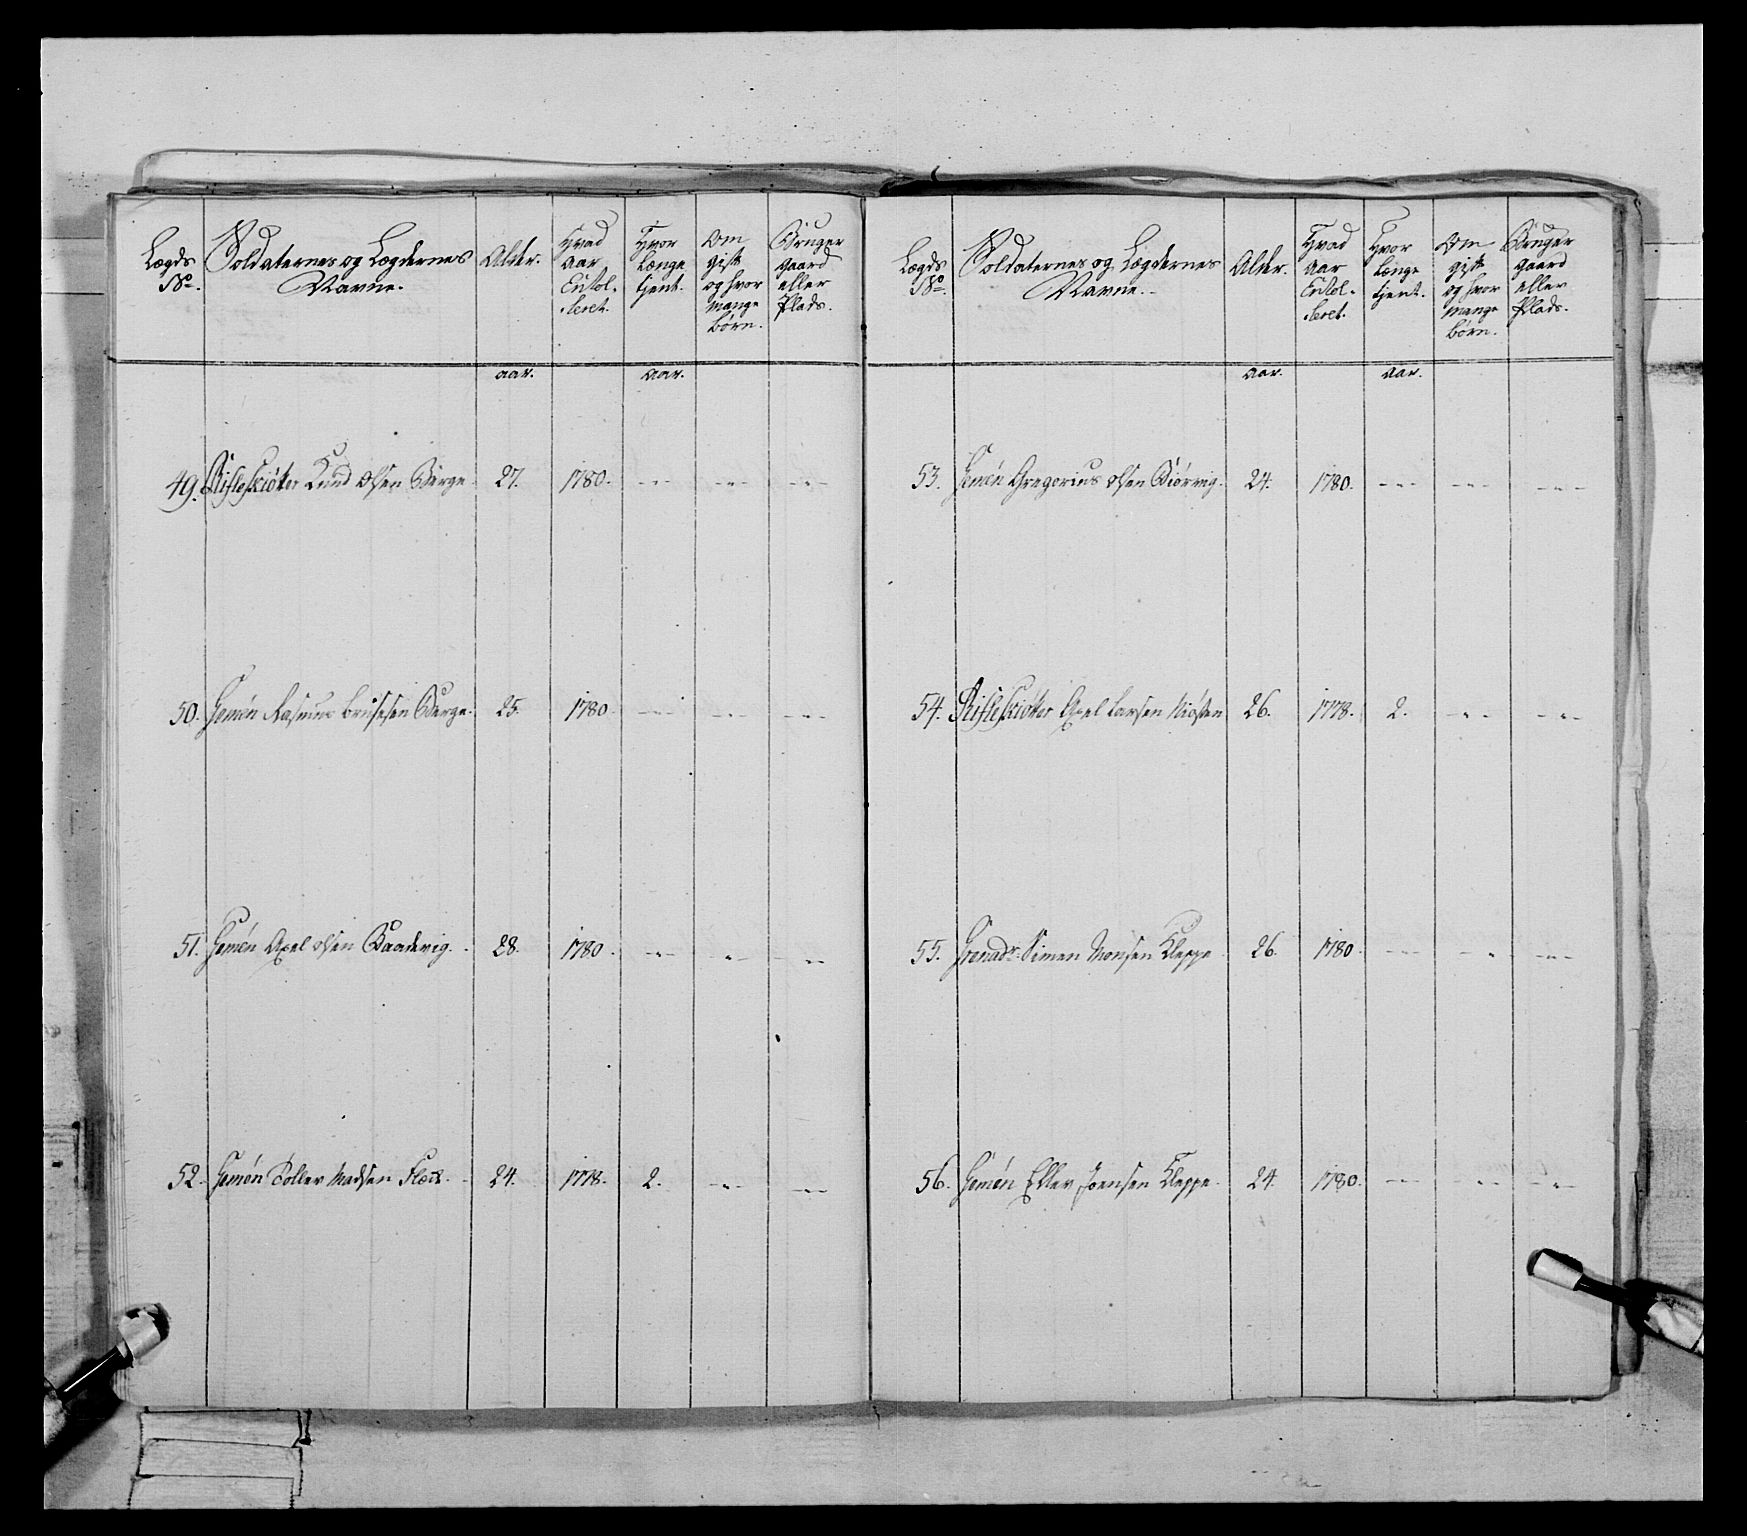 Lægds No. | Soldaternes og Lægdernes Navne. | Alder. | Hvad Aar Enrol-leret. | Hvor Længe tjent. | Om gift og hvor mange Børn. | Bruger Gaard eller Plads.
aar. | aar.
49. Rifleskiötter Knud Olsen Berge 27. 1780. - - -
50. Gemên Rasmus Brusesen Berge. 25. 1780. - - -
51. Gemên Axel Olsen Baadevig. 28. 1780. - - -
52. Gemên Tollev Madsen 24. 1778. 2. - -
Lægds No. | Soldaternes og Lægdernes Navne. | Alder. | Hvad Aar Enrol-leret. | Hvor Længe tjent. | Om gift og hvor mange Børn. | Bruger Gaard eller Plads.
aar. | aar.
53. Gemên Gregorius Olsen Biörvig. 24. 1780. - - -
54. Rifleskiötter Axel Larsen 26. 1778. 2. - -
55. Grenadr. Simen Monsen Kleppe 26. 1780. - - -
56. Gemên Ellev Joensen Kleppe. 24. 1780. - - -